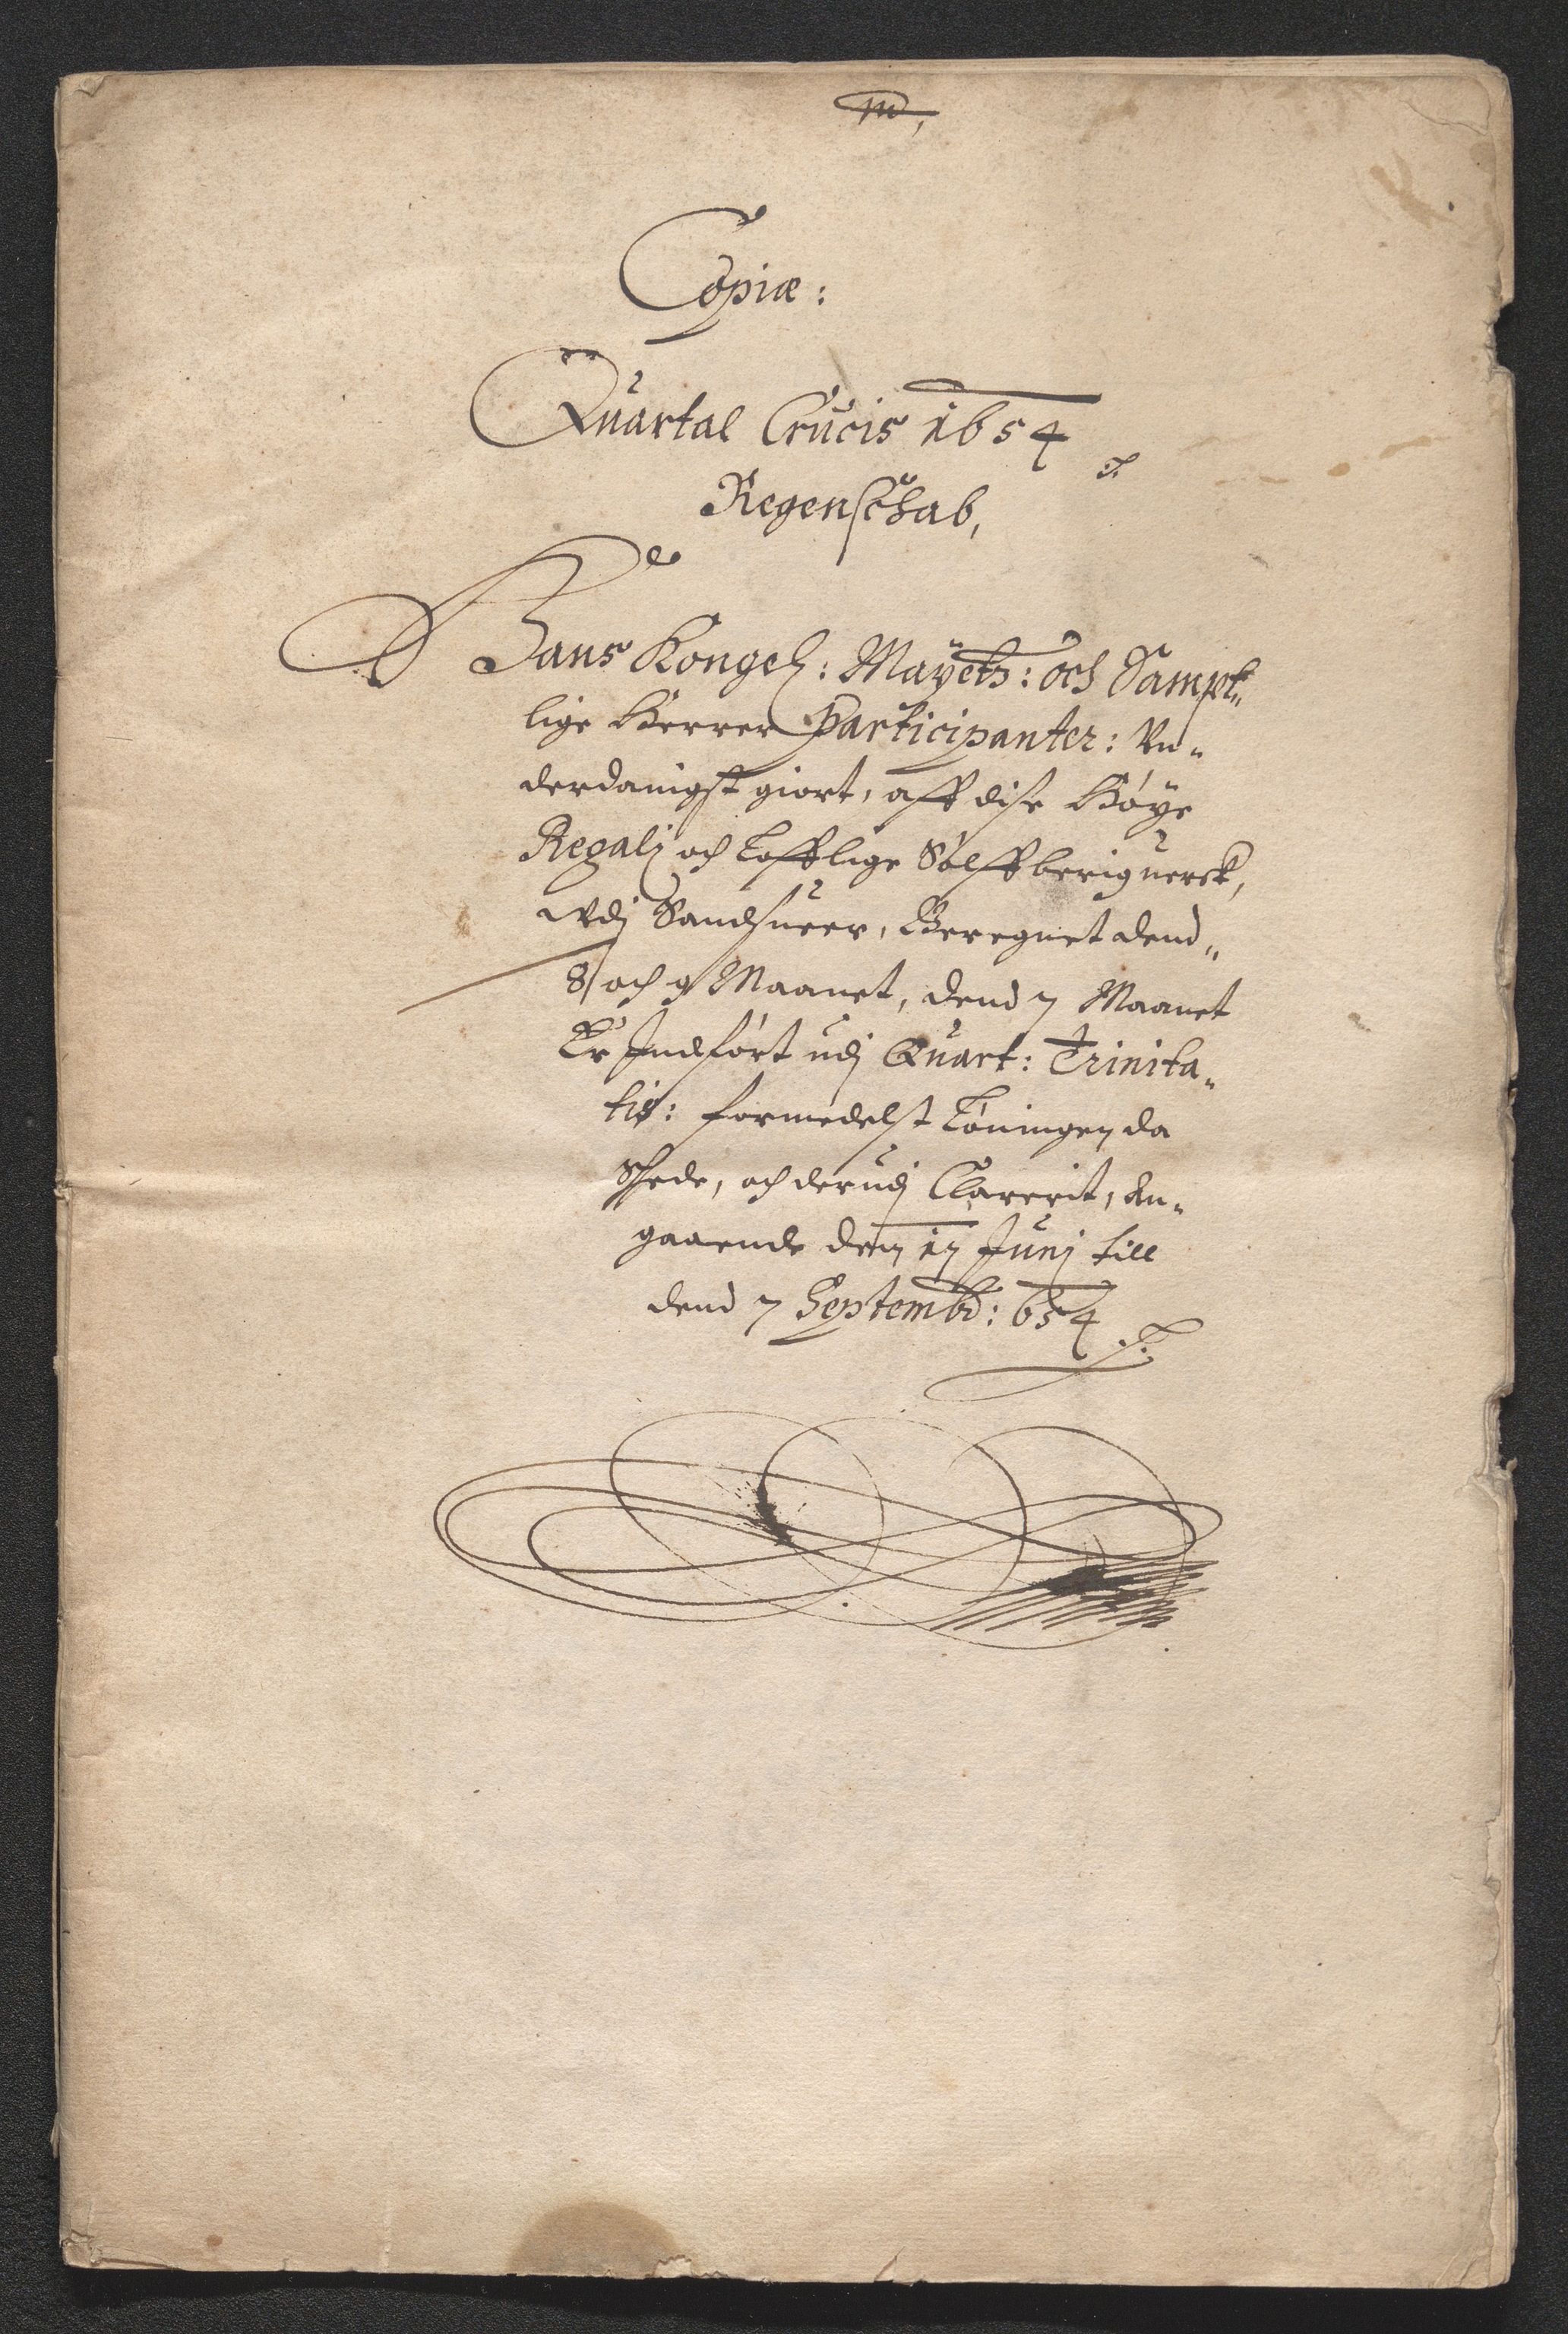 Copiæ:
Quartal Crucis 1654
Regenschab,
Hans Kongel: Mayetz: och Sampt„
lige Herrer Participanter: Vn„
derdanigst giort, aff dise Höye
Regalj och Lofflige Sölffberigwerck,
vdj Sandsuerr, Beregnet dend„
8 och 9 Maanet, dend 7 Maanet
Er Indfört udj Quart: Trinita„
tis: formedelst Löningen da
Skede, och derudj Clarerit, An„
gaaende den 17 Junj till
dend 7 Septembr: 654